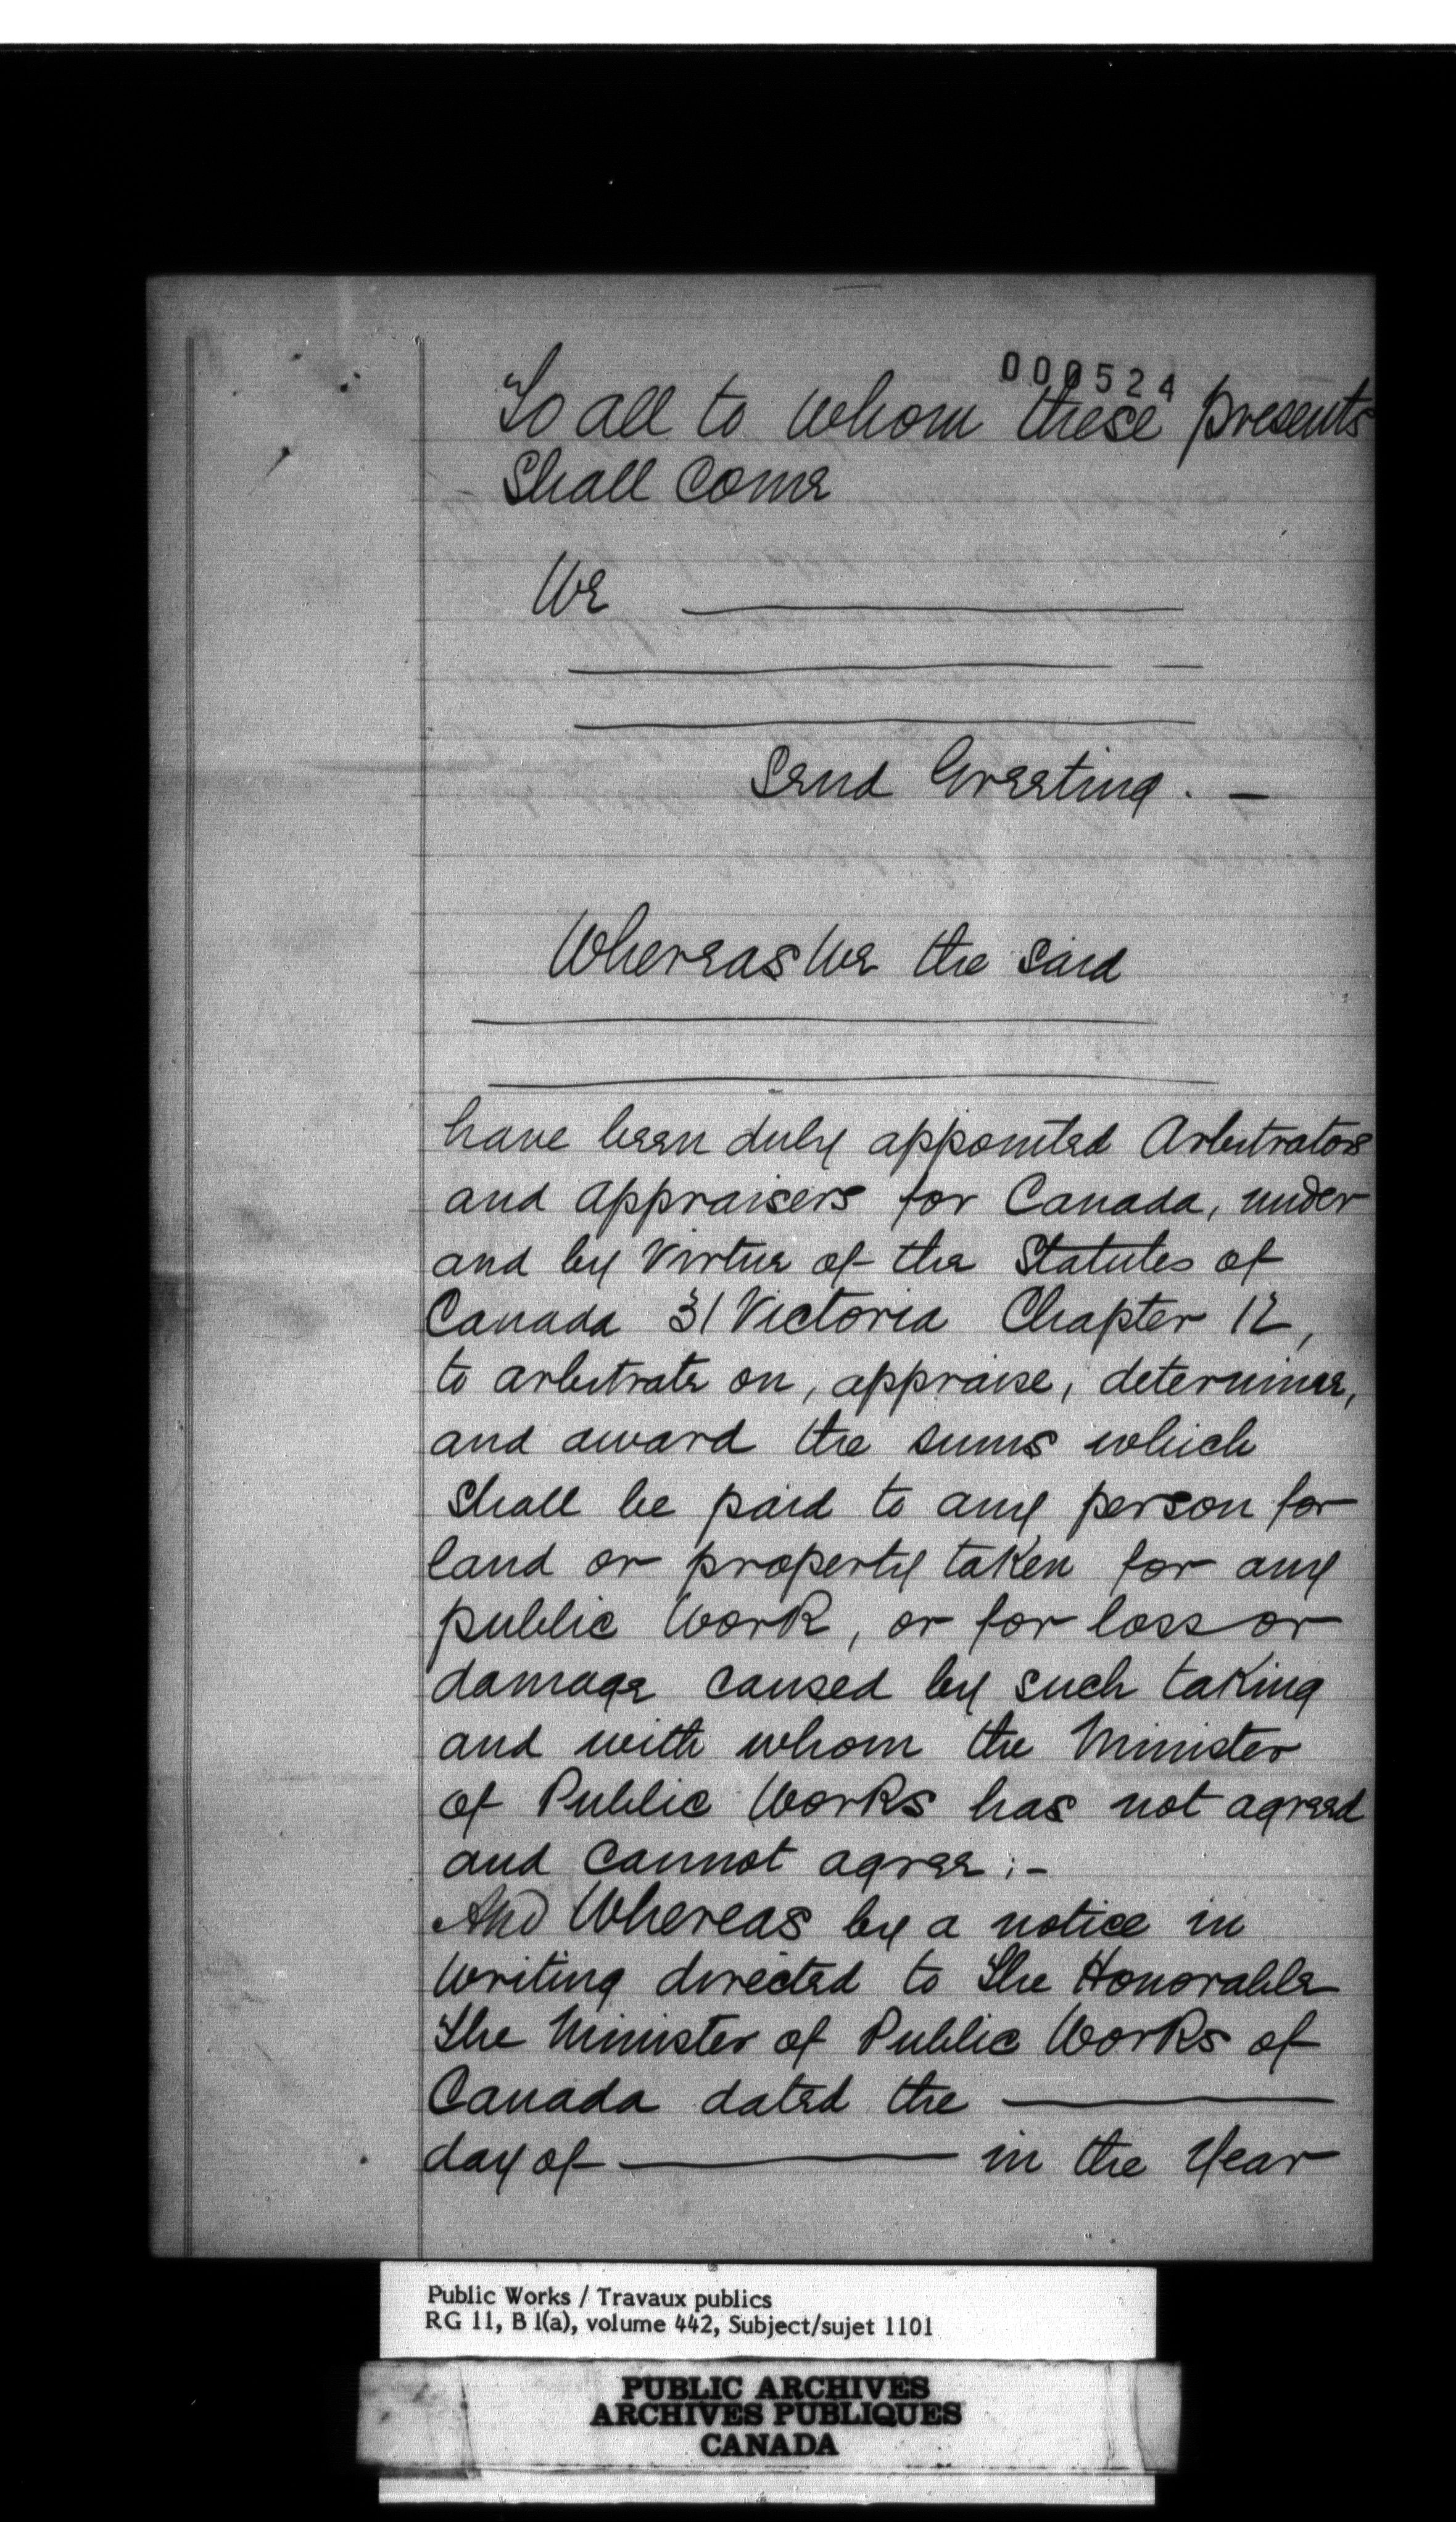 000524
To all to whom these presents
Shall Come
We
Send Greeting. -
Whereas We the said
have been duly appointed Arbitrators
and appraisers for Canada, under
and by Virtue of the Statutes of
Canada 31 Victoria Chapter 12,
to arbitrate on, appraise, determine,
and award the sums which
shall be paid to any person for
land or property taken for any
public Work, or for loss or
damage caused by such taking
and with whom the Minister
of Public Works has not agreed
and cannot agree :-
And Whereas by a notice in
Writing directed to The Honorable
The Minister of Public Works of
Canada dated the
day of in the Year
Public Works / Travaux publics
RG 11, B 1(a), volume 442, Subject/sujet 1101
PUBLIC ARCHIVES
ARCHIVES PUBLIQUES
CANADA